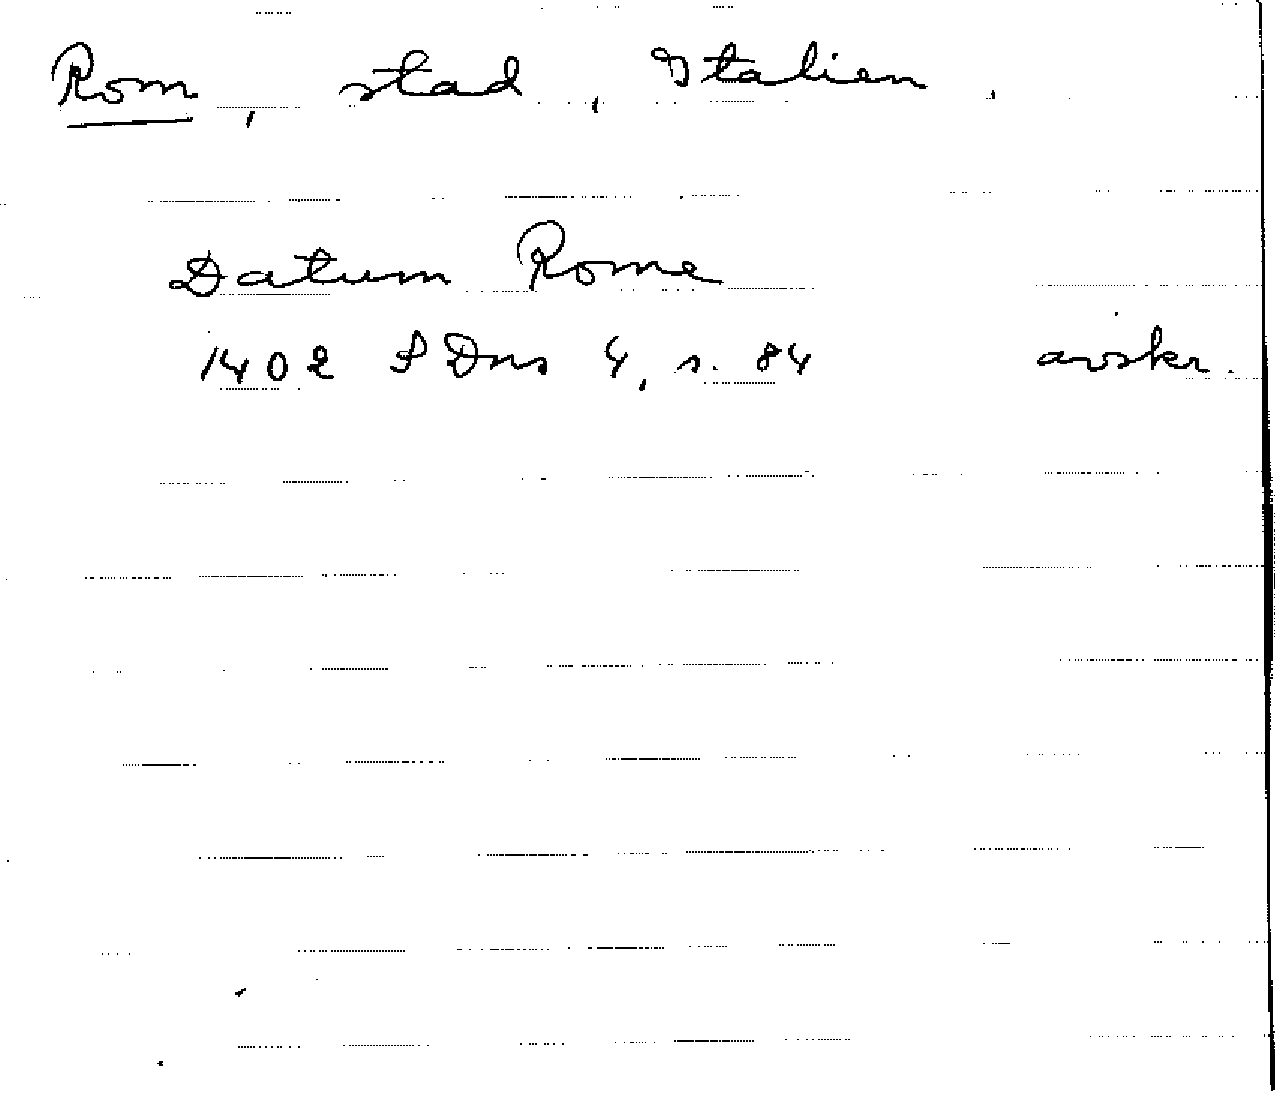 Rom, stad, Italien.
Datum Rome
1402 SDns 4, s. 84 avskr.